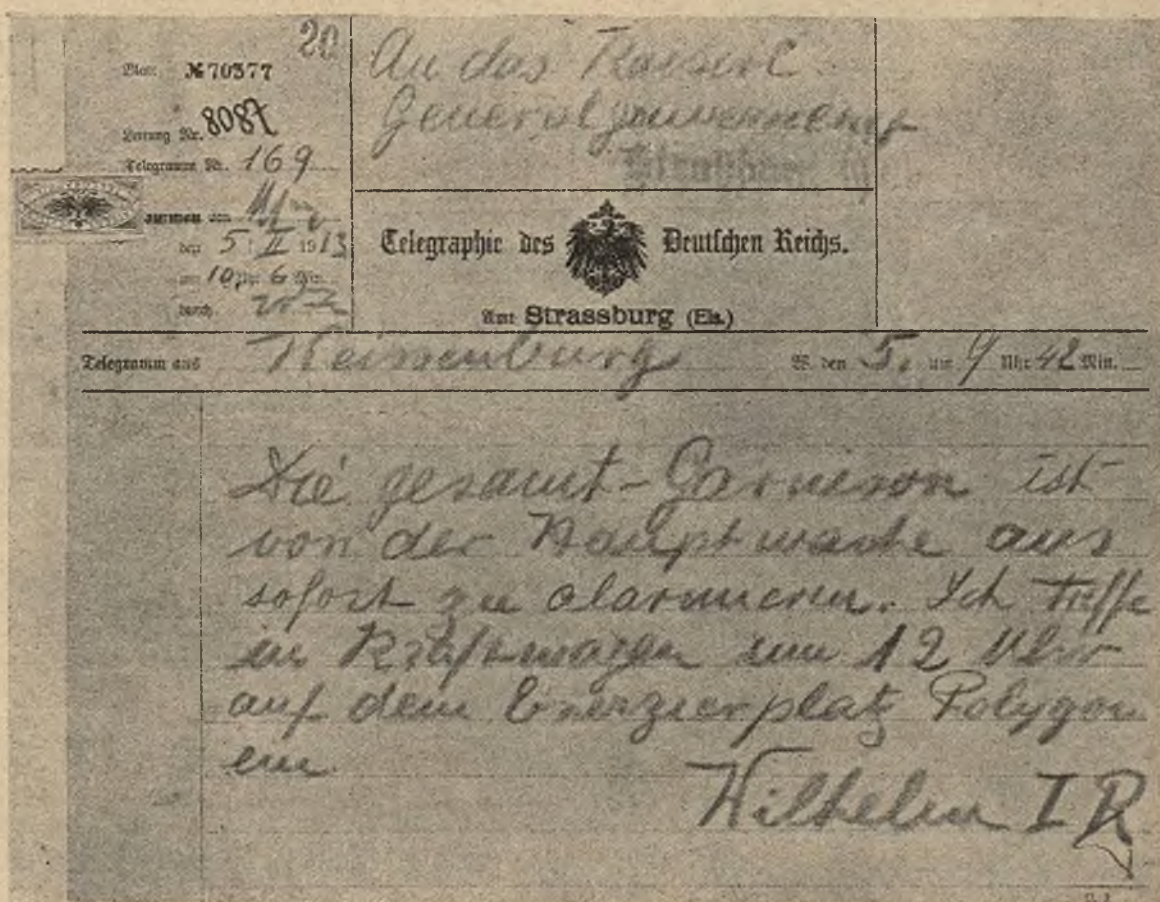 20
Blatt № 70377
Leitung Nr. 8087
Telegramm Nr. 169
den 5/II 1913
um 10 Uhr 6 Min.
durch
An das Kaiserl.
Generalgouvernement
Telegraphie des Deutschen Reichs.
Amt Strassburg (Els.)
Telegramm aus W. den 5. um 9 Uhr 42 Min.
Die gesamt-Garnison ist
von der Hauptwache aus
sofort zu alarmieren. Ich treffe
im Kraftwagen um 12 Uhr
auf dem Exerzierplatz Polygon
ein.
Wilhelm I R